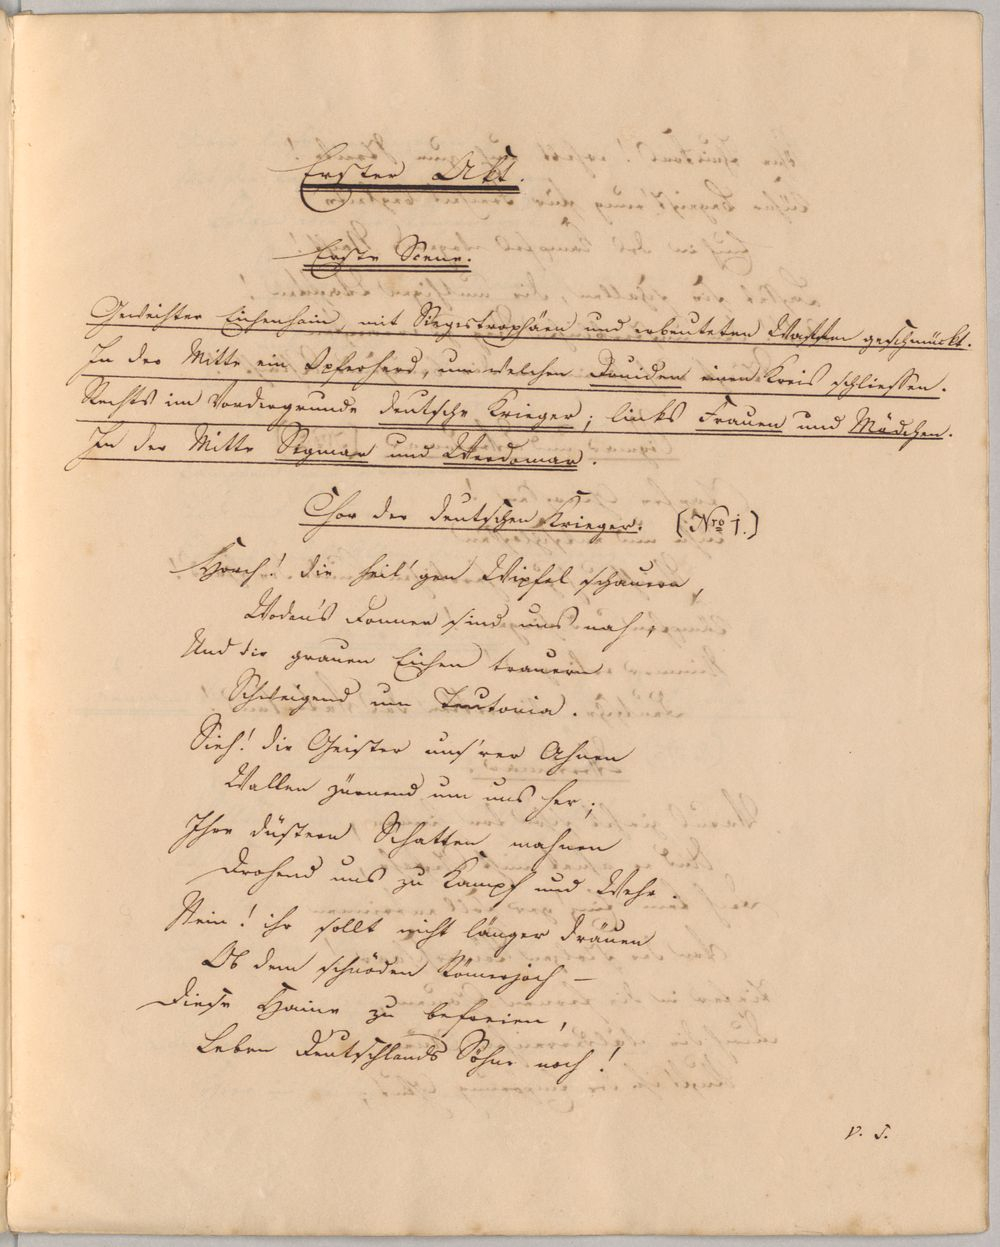 Erster Akt.
Erste Scene.
Geweihter Eichenhain, mit Siegestrophäen und erbeuteten Waffen geschmückt.
In der Mitte ein Opferherd, um welchen Druiden einen Kreis schliessen.
Rechts im Vordergrunde deutsche Krieger; links Frauen und Mädchen.
In der Mitte Sigmar und Werdomar.
Chor der deutschen Krieger. (Nro 1.)
Horch! die heil'gen Wipfel schauern,
Wodan's Donner sind uns nah,
Und die grauen Eichen trauern
Schweigend um Teutonia.
Sieh! die Geister uns'rer Ahnen
Wallen zürnend um uns her;
Ihre düstern Schatten mahnen
Drohend uns zu Kampf und Wehr.
Nein! ihr sollt nicht länger dräuen
Ob dem schnöden Römerjoch —
Diese Haine zu befreien,
Leben Deutschlands Söhne noch!
V. S.